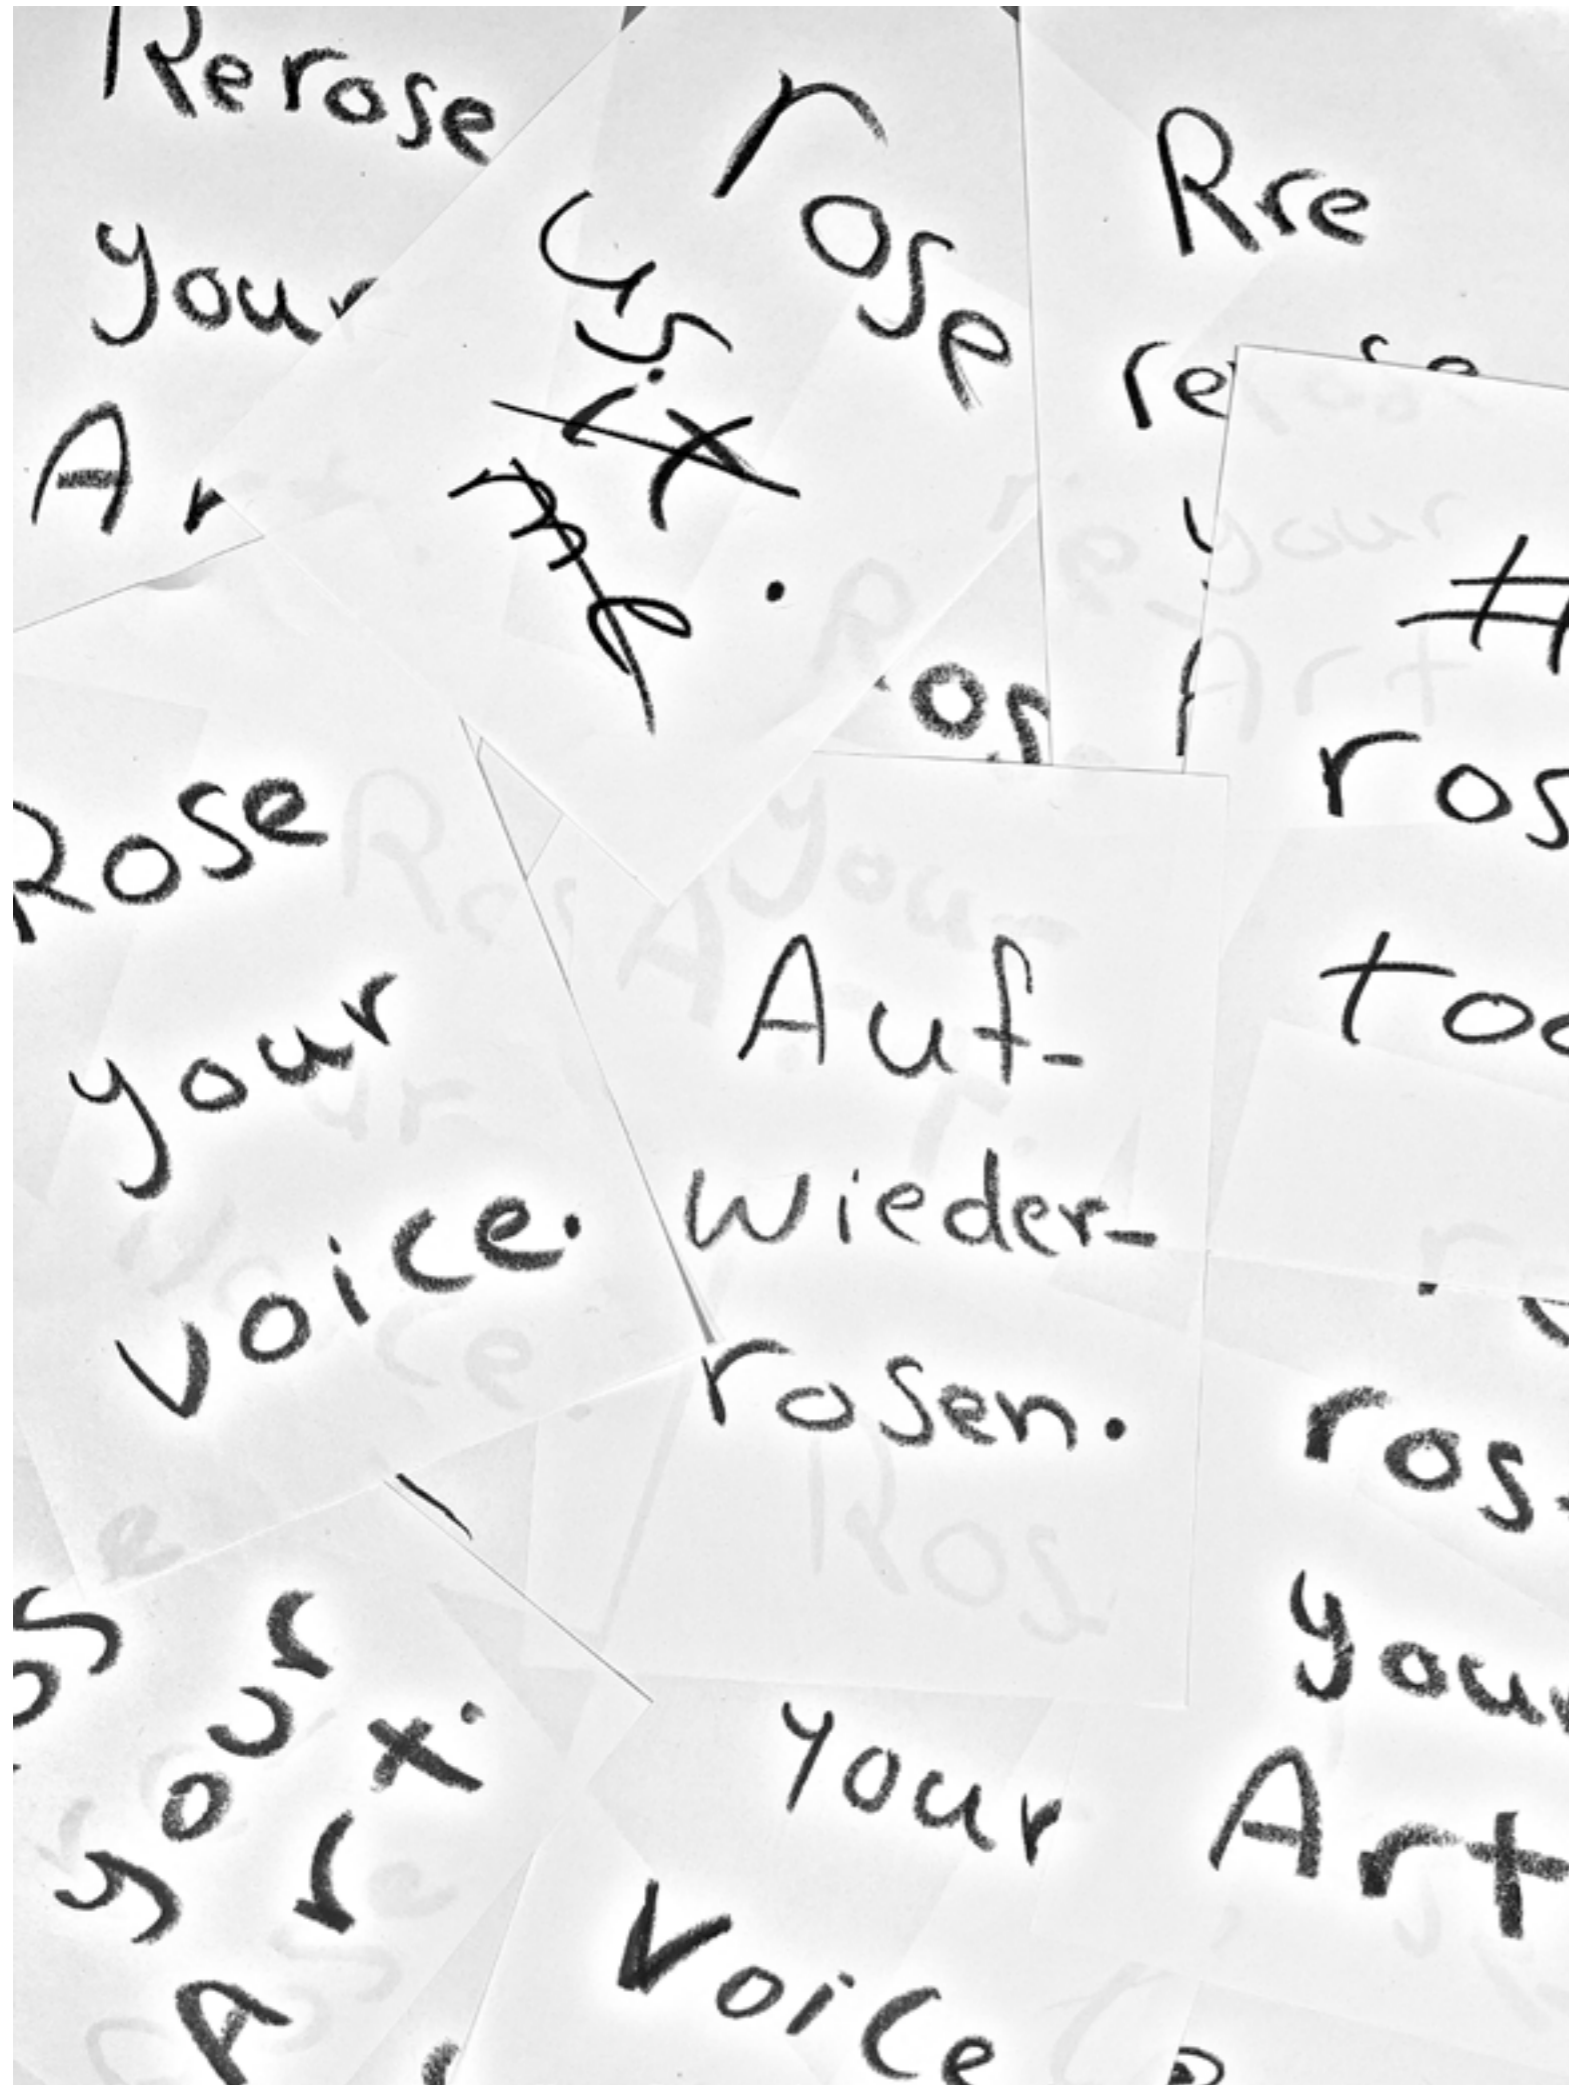 Rerose
your
Ar
rose
us.
it
me.
Rre
re
#
ros
too
os
Rose
your
voice.
Auf-
wieder-
rosen.
ros
your
Art
your
Art.
your
Voice